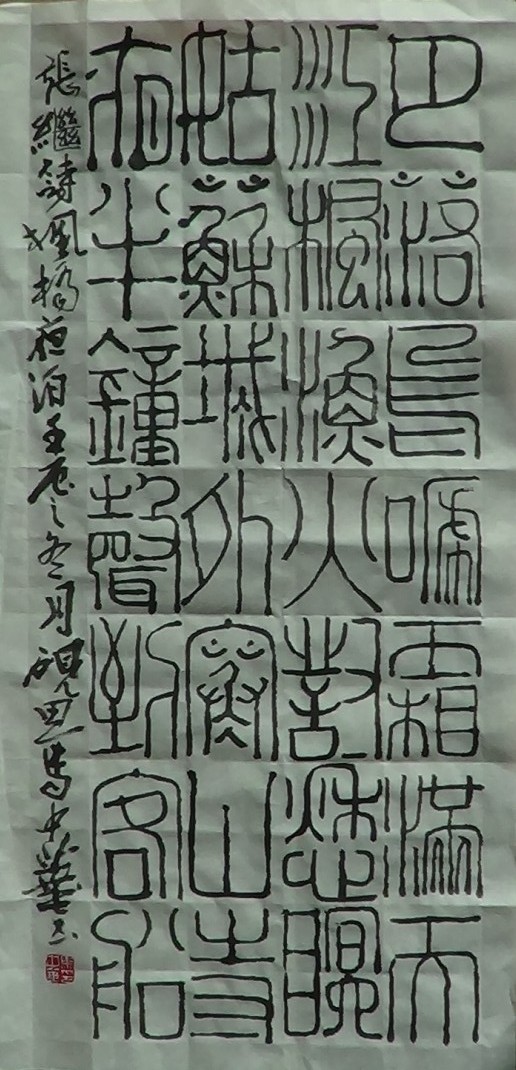 月落烏嗁霜滿天
江楓漁火對愁眠
姑蘇城外寒山寺
夜半鐘聲到客船
張繼詩楓橋夜泊壬辰之冬月硯田馬中華書